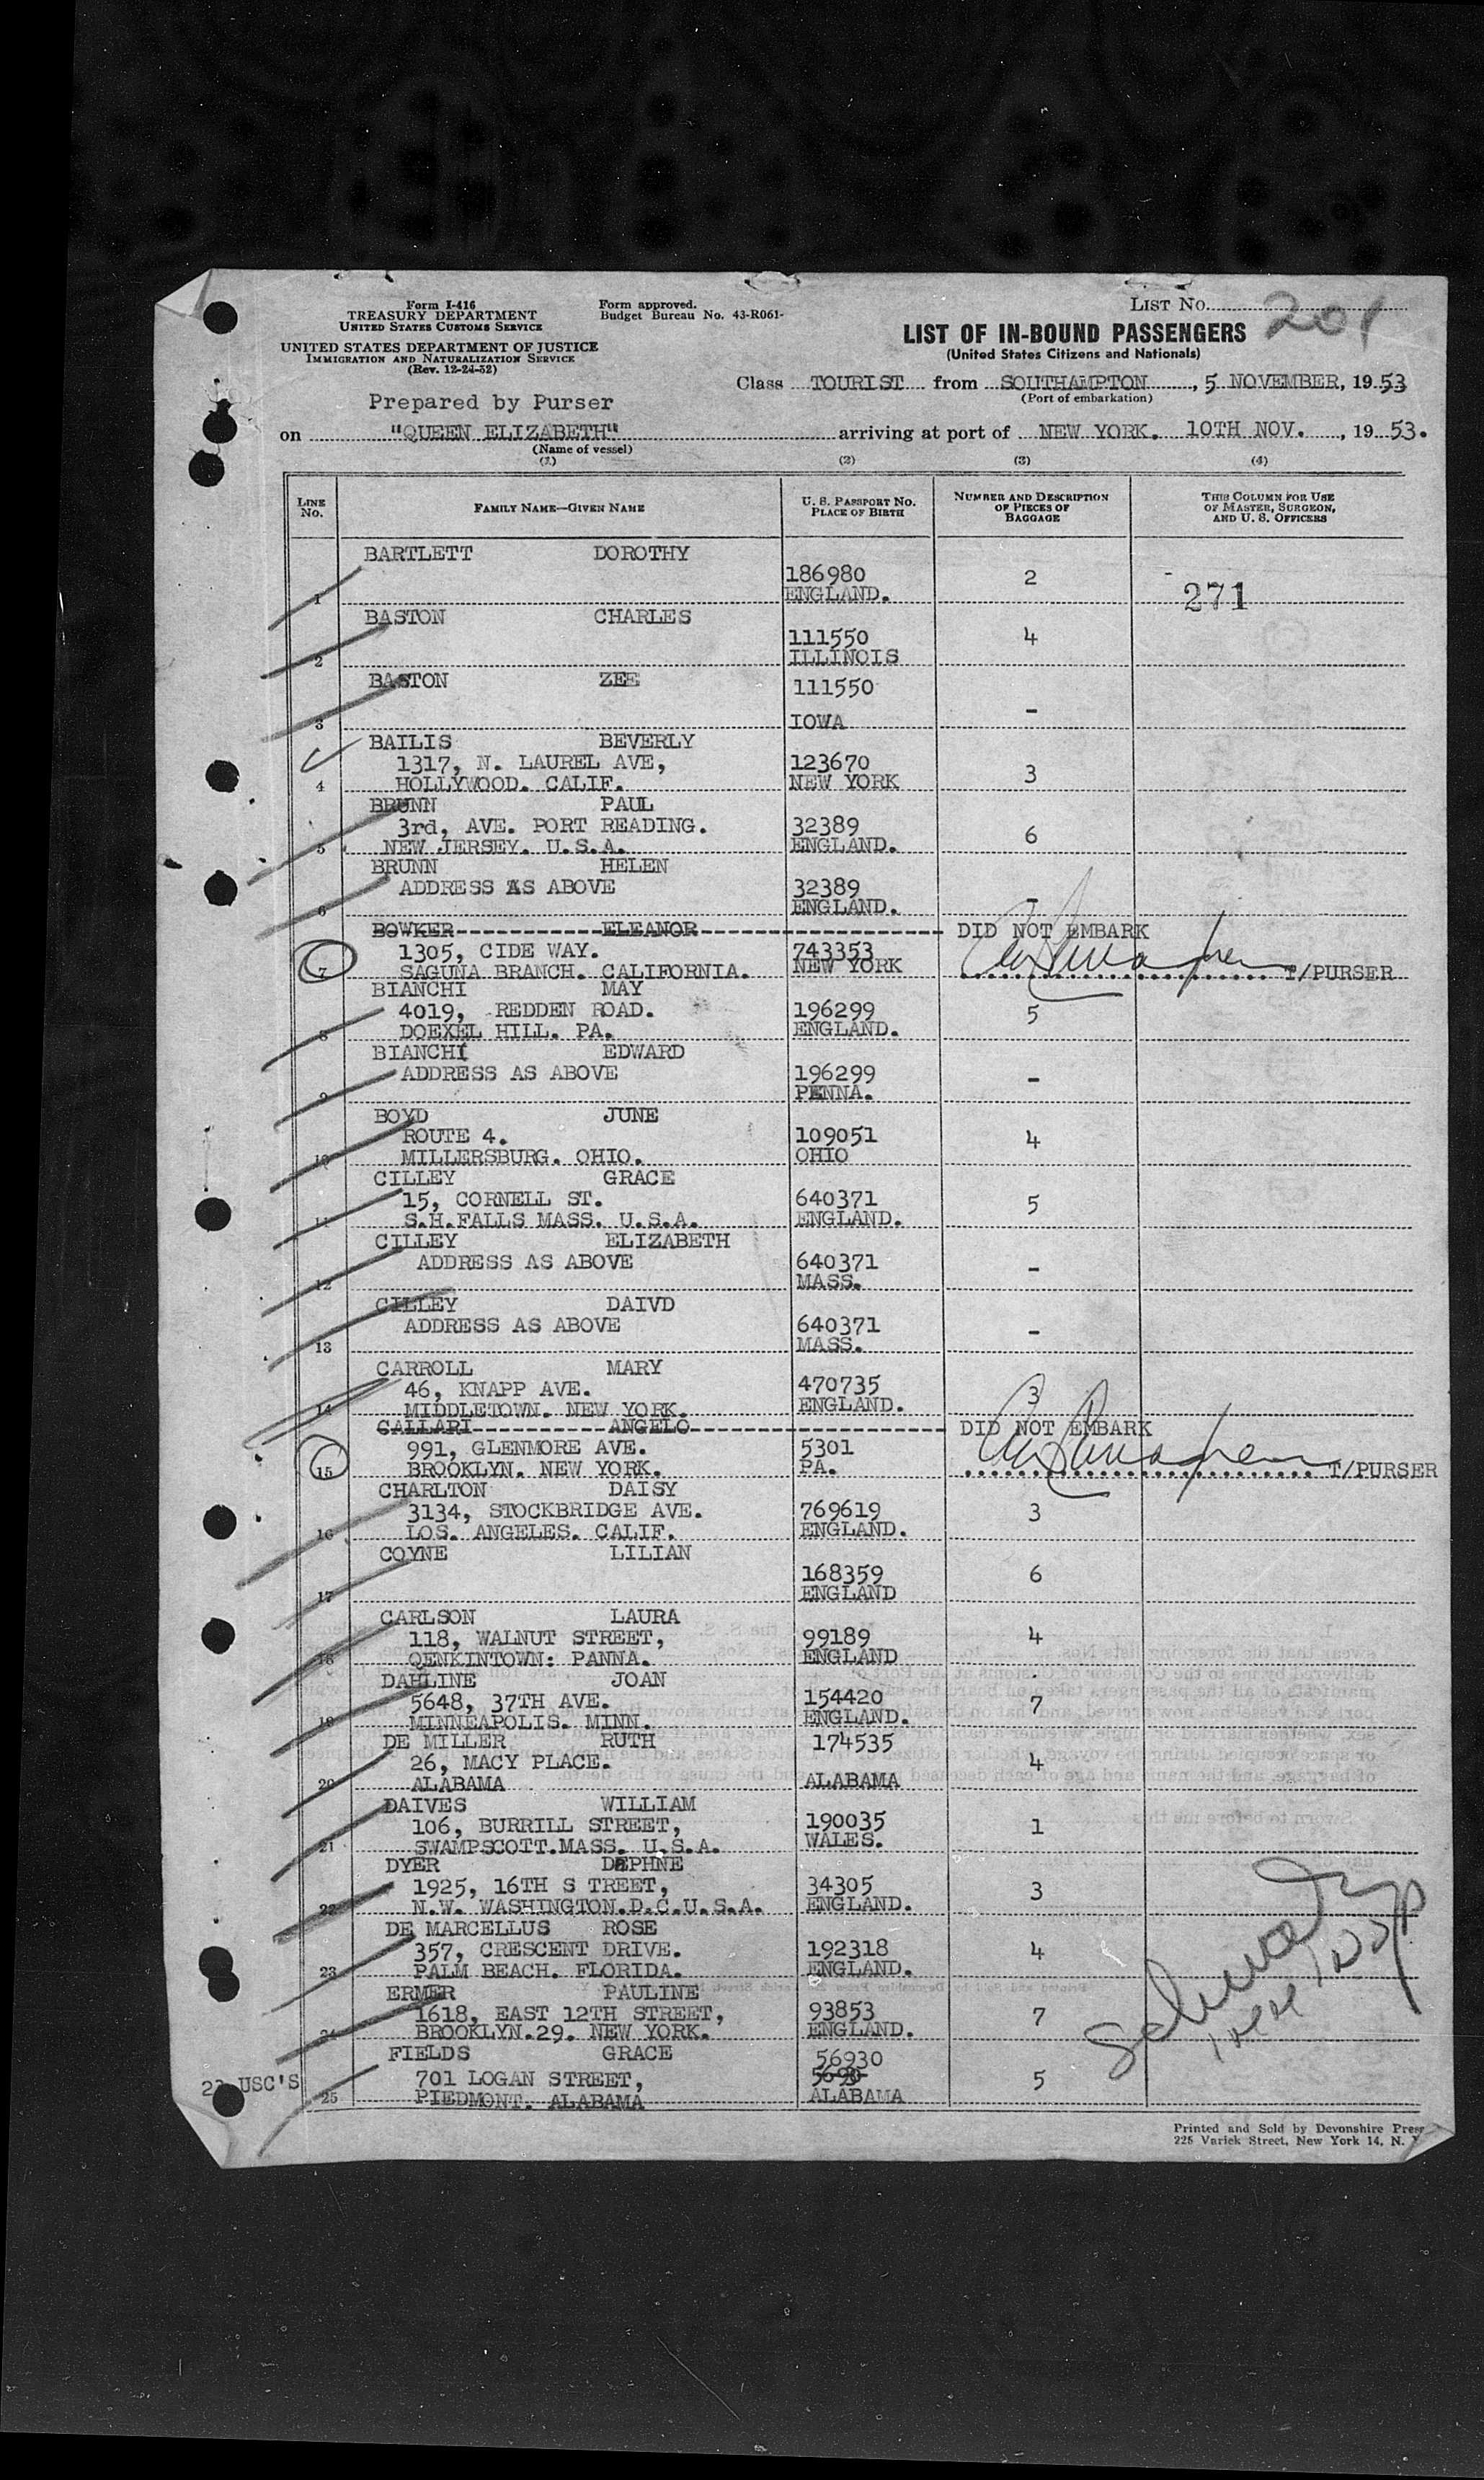 Form I-416
TREASURY DEPARTMENT
UNITED STATES CUSTOMS SERVICE
UNITED STATES DEPARTMENT OF JUSTICE
IMMIGRATION AND NATURALIZATION SERVICE
(Rev. 12-24-52)
Form approved.
Budget Bureau No. 43-R061-
LIST NO. 201
LIST OF IN-BOUND PASSENGERS
(United States Citizens and Nationals)
Class TOURIST from SOUTHAMPTON, 5 NOVEMBER, 1953
(Port of embarkation)
Prepared by Purser
on "QUEEN ELIZABETH" arriving at port of NEW YORK. 10TH NOV. , 1953.
(Name of vessel)
(1) (2) (3) (4)
LINE NO. FAMILY NAME—GIVEN NAME U. S. PASSPORT NO. PLACE OF BIRTH NUMBER AND DESCRIPTION OF PIECES OF BAGGAGE THIS COLUMN FOR USE OF MASTER, SURGEON, AND U. S. OFFICERS
BARTLETT DOROTHY
186980 2
1 ENGLAND. 271
BASTON CHARLES
111550 4
2 ILLINOIS
BASTON ZEE 111550
3 IOWA -
BAILIS BEVERLY
1317, N. LAUREL AVE, 123670 3
4 HOLLYWOOD. CALIF. NEW YORK
BRUNN PAUL
3rd, AVE. PORT READING. 32389 6
5 NEW JERSEY. U.S.A. ENGLAND.
BRUNN HELEN
ADDRESS AS ABOVE 32389
6 ENGLAND. -
BOWKER ELEANOR DID NOT EMBARK
1305, CIDE WAY. 743353
7 SAGUNA BRANCH. CALIFORNIA. NEW YORK T/PURSER
BIANCHI MAY
4019, REDDEN ROAD. 196299 5
8 DOEXEL HILL. PA. ENGLAND.
BIANCHI EDWARD
ADDRESS AS ABOVE 196299 -
9 PENNA.
BOYD JUNE
ROUTE 4. 109051 4
10 MILLERSBURG. OHIO. OHIO
CILLEY GRACE
15, CORNELL ST. 640371 5
11 S.H.FALLS MASS. U.S.A. ENGLAND.
CILLEY ELIZABETH
ADDRESS AS ABOVE 640371 -
12 MASS.
CILLEY DAIVD
ADDRESS AS ABOVE 640371 -
13 MASS.
CARROLL MARY
46, KNAPP AVE. 470735 3
14 MIDDLETOWN. NEW YORK. ENGLAND.
CALLARI ANGELO DID NOT EMBARK
991, GLENMORE AVE. 5301
15 BROOKLYN. NEW YORK. PA. T/PURSER
CHARLTON DAISY
3134, STOCKBRIDGE AVE. 769619 3
16 LOS. ANGELES. CALIF. ENGLAND.
COYNE LILIAN
168359 6
17 ENGLAND
CARLSON LAURA
118, WALNUT STREET, 99189 4
18 QENKINTOWN: PANNA. ENGLAND
DAHLINE JOAN
5648, 37TH AVE. 154420 7
19 MINNEAPOLIS. MINN. ENGLAND.
DE MILLER RUTH 174535
26, MACY PLACE. 4
20 ALABAMA ALABAMA
DAIVES WILLIAM
106, BURRILL STREET, 190035 1
21 SWAMPSCOTT.MASS. U.S.A. WALES.
DYER DAPHNE
1925, 16TH S TREET, 34305 3
22 N.W. WASHINGTON.D.C.U.S.A. ENGLAND.
DE MARCELLUS ROSE
357, CRESCENT DRIVE. 192318 4
23 PALM BEACH. FLORIDA. ENGLAND.
ERMER PAULINE
1618, EAST 12TH STREET, 93853 7
24 BROOKLYN.29. NEW YORK. ENGLAND.
FIELDS GRACE 56930
701 LOGAN STREET, 5690 5
25 PIEDMONT. ALABAMA ALABAMA
23 USC'S
Printed and Sold by Devonshire Press
225 Varick Street, New York 14, N. Y